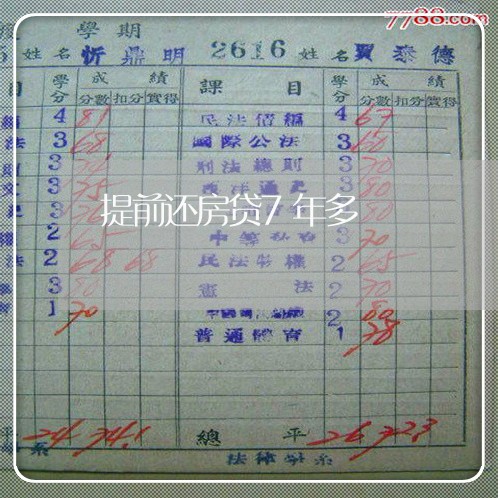 7788.com
學期
5 姓名 忻鼎明 2616 姓名 賈泰德
目 學分 成績 分數 扣分 實得 課目 學分 成績 分數 扣分 實得
4 81 民法債編 4 67
法 3 68 國際公法 3 60
3 刑法總則 3 70
3 75 3 80
提前还房贷7年多
2 65 3 70
法 2 68 68 民法物權 2 65
3 80 憲法 2 70
1 70 2 80
普通體育 1 78
平 24 74.1 總平 26 72.3
系 法律學系